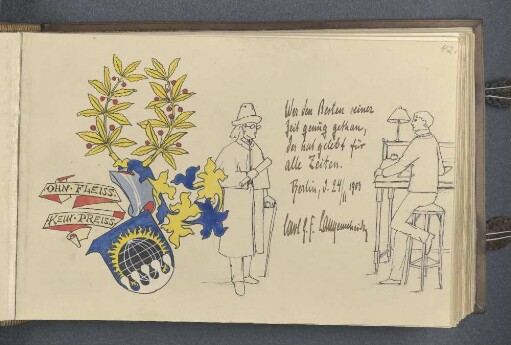 42.
OHN· FLEISS·
KEIN· PREISS·
Wer den Besten seiner
Zeit genug gethan,
der hat gelebt für
alle Zeiten.
Berlin, d. 24/II 1903
Carl F. F. Langenscheidt